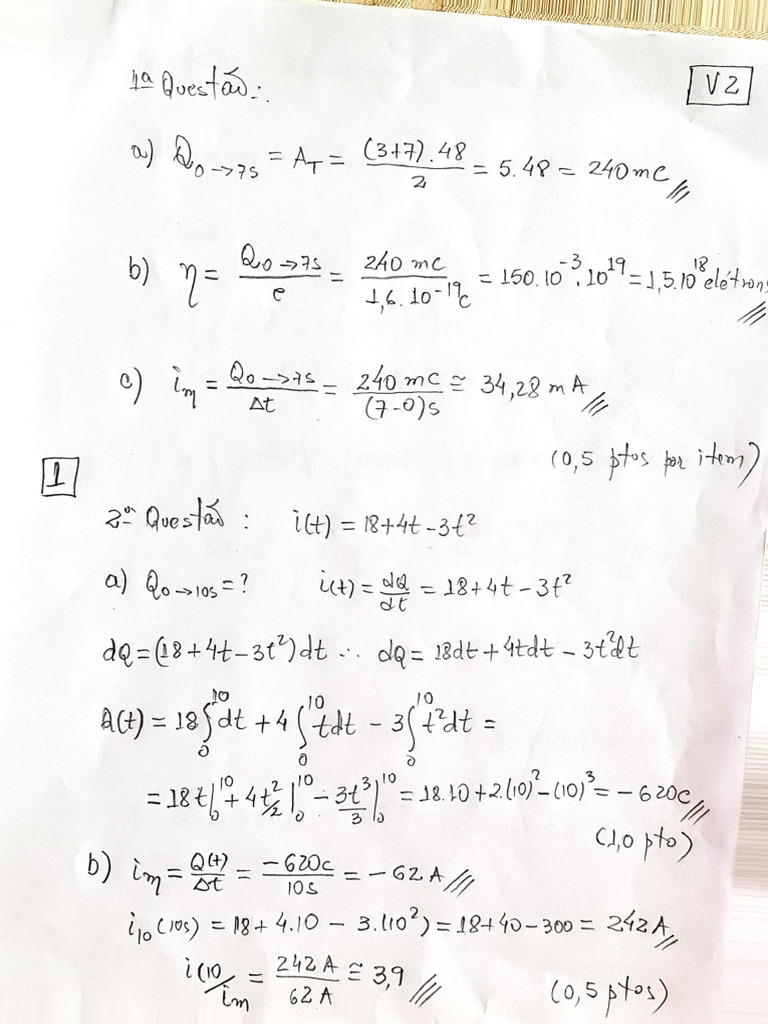 1ª Questão:.
V2
a) Q₀→₇s = A_T = (3+7).48/2 = 5.48 = 240mC
b) η = Q₀→₇s/e = 240 mC/1,6.10⁻¹⁹C = 150.10⁻³.10¹⁹ = 1,5.10¹⁸ elétrons
c) i_m = Q₀→₇s/Δt = 240 mC/(7-0)s ≅ 34,28 mA
(0,5 ptos por item)
1
2ª Questão : i(t) = 18+4t-3t²
a) Q₀→₁₀s = ? i(t) = dQ/dt = 18+4t-3t²
dQ = (18+4t-3t²)dt ∴ dQ = 18dt+4tdt-3t²dt
Q(t) = 18∫₀¹⁰dt + 4∫₀¹⁰tdt - 3∫₀¹⁰t²dt =
= 18t|₀¹⁰ + 4t²/2|₀¹⁰ - 3t³/3|₀¹⁰ = 18.10+2.(10)²-(10)³ = -620C
(1,0 pto)
b) i_m = Q(t)/Δt = -620C/10s = -62A
i₁₀(10s) = 18+4.10-3.(10²) = 18+40-300 = 242A
i(10/i_m = 242A/62A ≅ 3,9
(0,5 ptos)